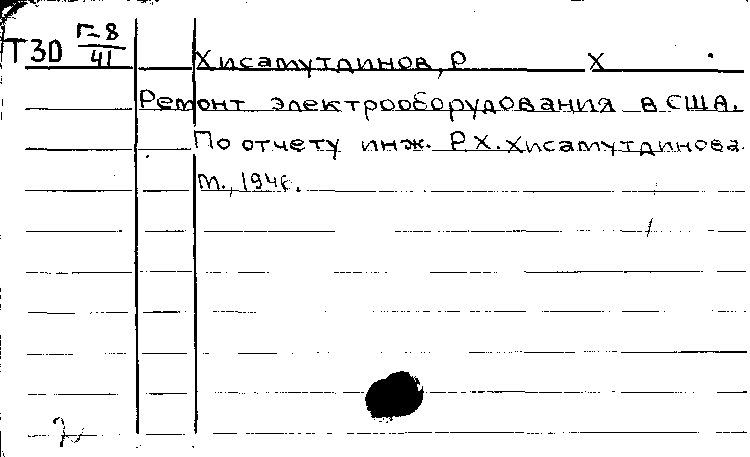 Т30 Г-8/41
Хисамутдинов, Р Х.
Ремонт электрооборудования в США.
По отчету инж. Р.Х. Хисамутдинова.
М., 1946.